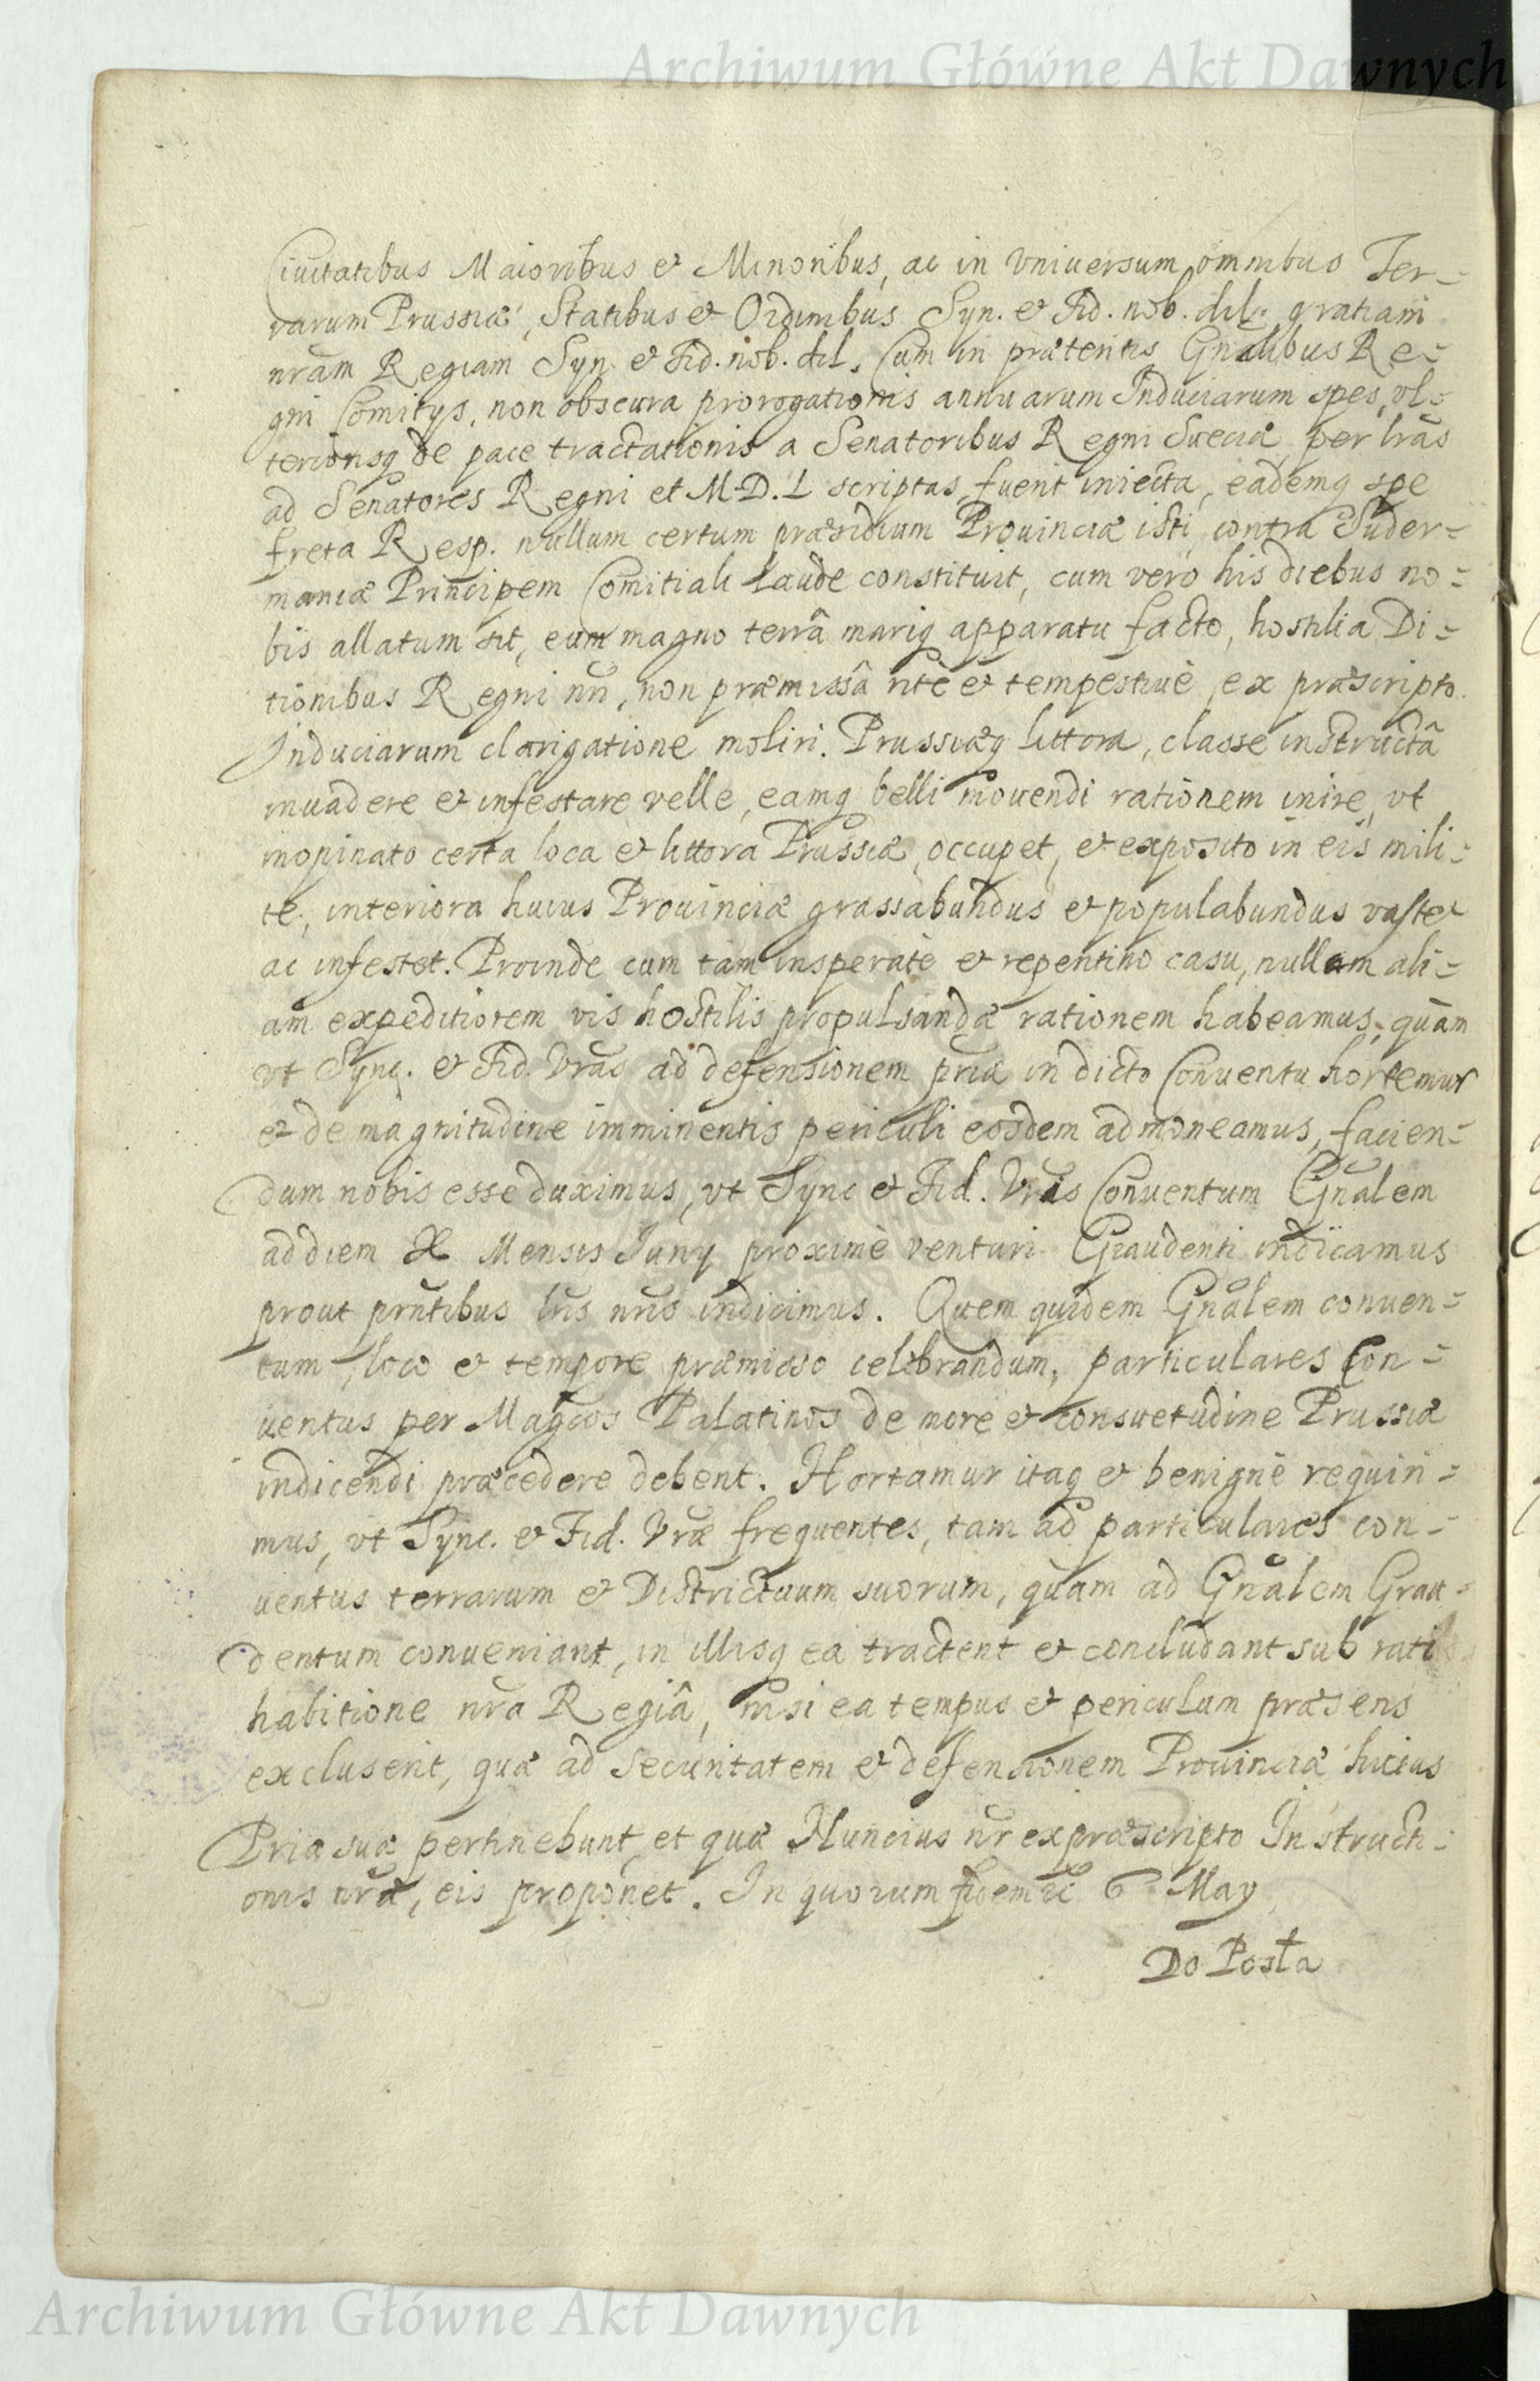 Archiwum Główne Akt Dawnych
Ciuitatibus Maioribus et Minoribus, ac in Vniuersum omnibus Ter-
rarum Prussiæ, Statibus et Ordinibus Syn. et Fid. nob. dil. gratiam
nr̃am Regiam Syn. et Fid. nob. dil. Cum in præteritis Gñalibus Re-
gni Comitÿs, non obscura prorogationis annuarum Induciarum spes, vl-
teriorisq de pace tractationis a Senatoribus Regni Sueciæ, per lr̃as
ad Senatores Regni et M.D.L scriptas, fuerit iniecta, eademq spe
freta Resp. nullum certum præsidium Prouinciæ isti, contra Suder-
maniæ Principem Comitiali laude constituit, cum vero his diebus no-
bis allatum sit, eum magno terrâ mariq apparatu facto, hostilia Di-
tionibus Regni nr̃i, non præmissâ ritè et tempestiuè, ex præscripto
Induciarum clarigatione moliri. Prussiæq littora, classe instructâ
inuadere et infestare velle, eamq belli mouendi rationem inire, vt
inopinato certa loca et littora Prussiæ, occupet, et exposito in eis mili-
te, interiora huius Prouinciæ grassabundus et populabundus vastet
ac infestet. Proinde cum tam insperate et repentino casu, nullam ali-
am expeditiorem vis hostilis propulsandæ rationem habeamus, quàm
vt Sync. et Fid. Vr̃as ad defensionem priæ indicto Conuentu hortemur
et de magnitudine imminentis periculi eosdem admoneamus, facien-
dum nobis esse duximus, vt Sync et Fid. Vr̃is Conuentum Gñalem
ad diem X Mensis Junÿ proximè venturi Graudenti indicamus
prout pr̃ntibus lr̃is nr̃is indicimus. Quem quidem Gñalem conuen-
tum, loco et tempore præmisso celebrandum, particulares Con-
uentus per Magcos Palatinos de more et consuetudine Prussiæ
indicendi præcedere debent. Hortamur itaq et benignè requiri-
mus, vt Sync. et Fid. Vr̃æ frequentes, tam ad particulares con-
uentus terrarum et Districtuum suorum, quam ad Gñalem Grau-
dentum conueniant, in illisq ea tractent et concludant sub rati
habitione nr̃a Regiâ, nisi ea tempus et periculum præsens
excluserit, quæ ad securitatem et defensionem Prouinciæ huius
Priæ suæ pertinebunt, et quæ Nuncius nr̃ ex præscripto Instructi-
onis nr̃æ, eis proponet. In quorum fidem etc 6 May
Do Posła
Archiwum Główne Akt Dawnych